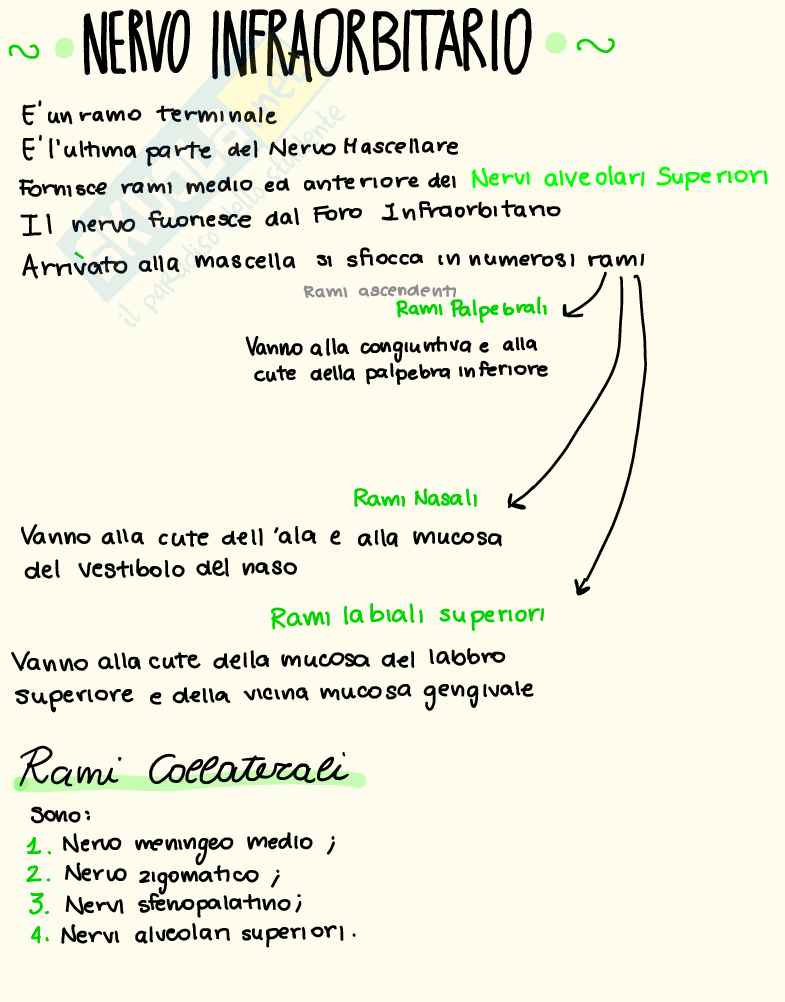 ~ • NERVO INFRAORBITARIO • ~
E' un ramo terminale
E' l'ultima parte del Nervo Mascellare
Fornisce rami medio ed anteriore dei Nervi alveolari Superiori
Il nervo fuoriesce dal Foro Infraorbitario
Arrivato alla mascella si sfiocca in numerosi rami
Rami ascendenti
Rami Palpebrali
Vanno alla congiuntiva e alla
cute della palpebra inferiore
Rami Nasali
Vanno alla cute dell'ala e alla mucosa
del vestibolo del naso
Rami labiali superiori
Vanno alla cute della mucosa del labbro
superiore e della vicina mucosa gengivale
Rami Collaterali
Sono:
1. Nervo meningeo medio;
2. Nervo zigomatico;
3. Nervi sfenopalatino;
4. Nervi alveolari superiori.
SKUOLA.net
il paradiso dello studente